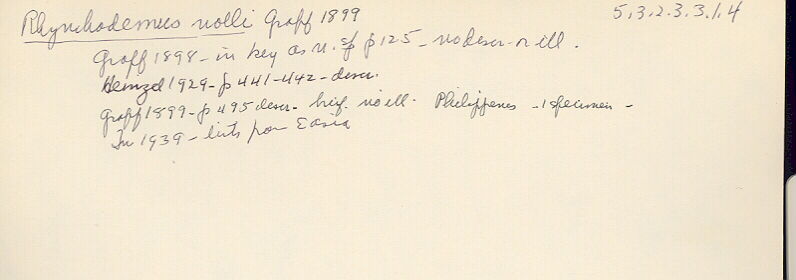 Rhynchodemus nolli Graff 1899 5.3.2.3.3.1.4
Graff 1898 - in key as n. sp p 125 - no descr. or ill.
Heinzel 1929 - p 441-442 - descr.
Graff 1899 - p 495 descr. brief. no ill. Philippenes - 1 specimen -
In 1939 - lists from E asia